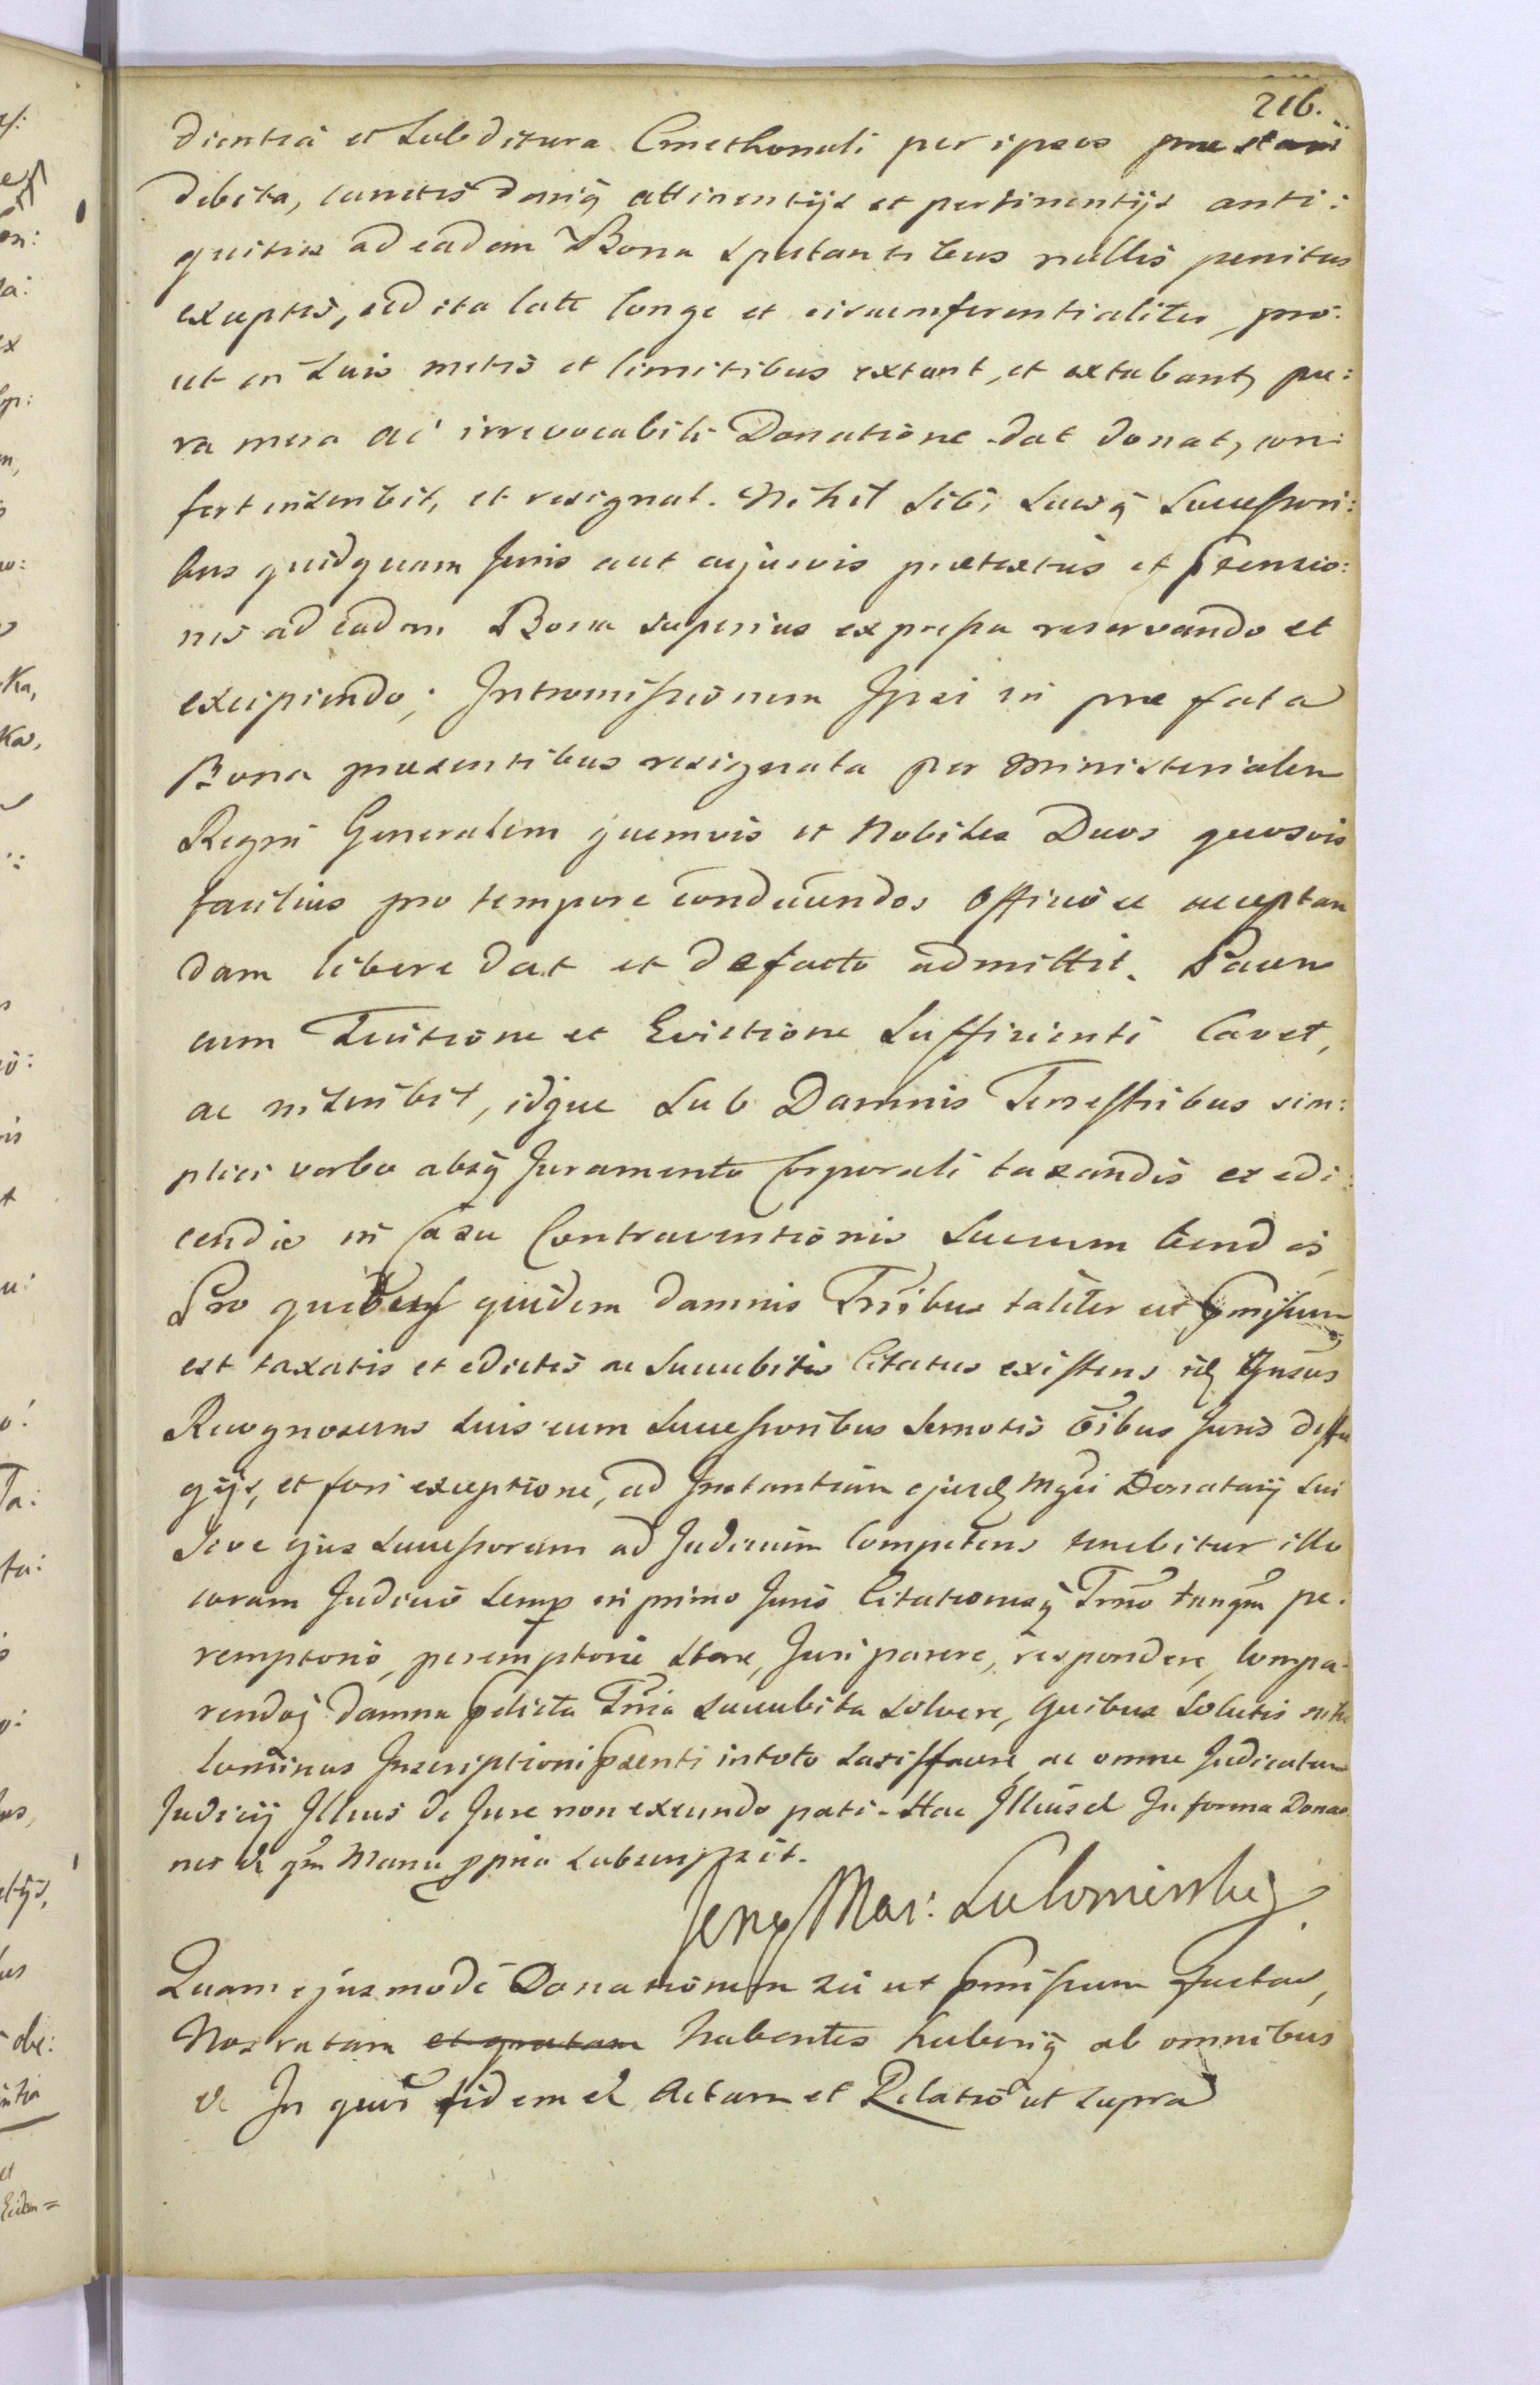 216.
dientia et Subditura Cmethonali per ipsos praestari
debita, cunctis deniq attinentijs et pertinentijs anti:
quitus ad eadem Bona spectantibus nullis penitus
exceptis, sed ita late longe et circumferentialiter, pro:
ut in suis metis et limitibus extant, et extabant, pu:
ra mera ac irrevocabili Donatione dat donat, con:
fert inscribit, et resignat. Nihil sibi suisq Successori:
bus quidquam Juris aut cujusvis praetextus et Ptensio:
nis ad eadem Bona superius expressa reservando et
excipiendo; Intromissionem Ipsi in prae fata
Bona praesentibus resignata per Ministerialem
Regni Generalem quemvis et Nobiles Duos quosvis
facilius pro tempore conducendos officiose acceptan
dam libere dat et de facto admittit. Pacem
cum Tuitione et Evictione Sufficienti Cavet,
ac inscribit, idque sub Damnis Terrestribus sim:
plici verbo absq Juramento Corporali taxandis et edi:
cendis in Casu Contraventionis Succumbendis
Pro quibus quidem damnis Trribus taliter ut pmissum
est taxatis et edictis ac Succubitis Citatus existens idem Ipsus
Recognoscens suis cum Successoribus Semotis oibus Juris diffu
gijs, et fori exceptione, ad Instantiam ejusd Mgci Donatarij sui
sive ejus Successorum ad Judicium Competens tenebitur illo
coram Judicio Semp in primo Juris Citationisq Trno tanqm pe:
remptorio, peremptorie stare, Juri parere, respondere, Compa:
rendoq damna pdicta Trria Succubita solvere, quibus solutis nihi
lominus Inscriptioni Psenti in toto satisfacere, ac omne Judicatum
Judicij Illius de Jure non exeundo pati. Hac Illius et In forma Donao
nis & qm Manu ppria subscripsit.
Jerzy Mar: Lubomirski
Quam ejusmodi Donationem sic ut pmissum factam,
Nos ratam et gratam habentes haberiq ab omnibus
& In quor fidem & Actum et Relatio ut supra